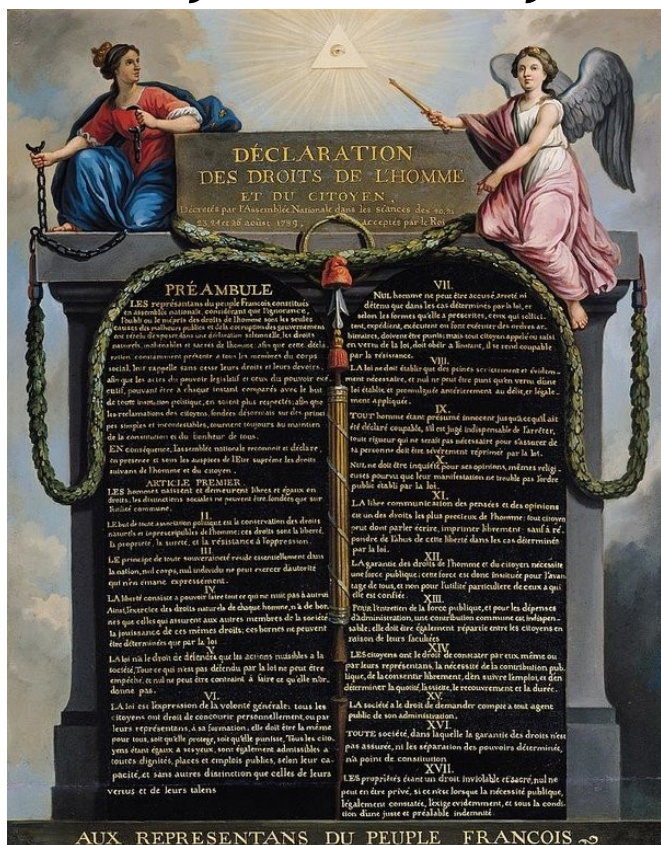 DÉCLARATION
DES DROITS DE L'HOMME
ET DU CITOYEN,
Décretés par l'Assemblée Nationale dans les séances des 20, 21
23, 24 et 26 août 1789, acceptés par le Roi
PRÉAMBULE
LES représentans du peuple François, constitués
en assemblée nationale, considérant que l'ignorance,
l'oubli ou le mépris des droits de l'homme sont les seules
causes des malheurs publics et de la corruption des gouvernemens
ont résolu d'exposer dans une déclaration solennelle, les droits
naturels, inaliénables et sacrés de l'homme; afin que cette décla-
ration, constamment présente à tous les membres du corps
social, leur rappelle sans cesse leurs droits et leurs devoirs;
afin que les actes du pouvoir législatif et ceux du pouvoir exé-
cutif, pouvant être à chaque instant comparés avec le but
de toute institution politique, en soient plus respectés; afin que
les réclamations des citoyens, fondées désormais sur des princi-
pes simples et incontestables, tournent toujours au maintien
de la constitution et du bonheur de tous.
EN conséquence, l'assemblée nationale reconnoit et déclare,
en présence et sous les auspices de l'Etre suprême les droits
suivans de l'homme et du citoyen.
ARTICLE PREMIER.
LES hommes naissent et demeurent libres et égaux en
droits; les distinctions sociales ne peuvent être fondées que sur
l'utilité commune.
II.
LE but de toute association politique est la conservation des droits
naturels et imprescriptibles de l'homme; ces droits sont la liberté,
la propriété, la sureté, et la résistance à l'oppression.
III.
LE principe de toute souveraineté réside essentiellement dans
la nation, nul corps, nul individu ne peut exercer d'autorité
qui n'en émane expressément.
IV.
LA liberté consiste à pouvoir faire tout ce qui ne nuit pas à autrui
Ainsi, l'exercice des droits naturels de chaque homme, n'a de bor-
nes que celles qui assurent aux autres membres de la société
la jouissance de ces mêmes droits; ces bornes ne peuvent
être déterminées que par la loi
V.
LA loi n'a le droit de défendre que les actions nuisibles à la
société. Tout ce qui n'est pas défendu par la loi ne peut être
empêché, et nul ne peut être contraint à faire ce qu'elle n'or-
donne pas.
VI.
LA loi est l'expression de la volonté générale; tous les
citoyens ont droit de concourir personnellement, ou par
leurs représentans, à sa formation; elle doit être la même
pour tous, soit qu'elle protège, soit qu'elle punisse, Tous les cito-
yens étant égaux à ses yeux, sont également admissibles à
toutes dignités, places et emplois publics, selon leur ca-
pacité, et sans autres distinction que celles de leurs
vertus et de leurs talens
VII.
NUL homme ne peut être accusé, arreté, ni
détenu que dans les cas déterminés par la loi, et
selon les formes qu'elle a prescrites, ceux qui sollici-
tent, expédient, exécutent ou font exécuter des ordres ar-
bitraires, doivent être punis; mais tout citoyen appelé ou saisi
en vertu de la loi, doit obéir à l'instant, il se rend coupable
par la résistance.
VIII.
LA loi ne doit établir que des peines strictement et évidem-
ment nécessaire, et nul ne peut être puni qu'en vertu d'une
loi établie, et promulguée antérieurement au délit, et légale-
ment appliquée.
IX.
TOUT homme étant présumé innocent jusqu'à ce qu'il ait
été déclaré coupable, s'il est jugé indispensable de l'arrêter,
toute rigueur qui ne serait pas nécessaire pour s'assurer de
sa personne doit être sévèrement réprimée par la loi.
X.
NUL ne doit être inquiété pour ses opinions, mêmes religi-
euses pourvu que leur manifestation ne trouble pas l'ordre
public établi par la loi.
XI.
LA libre communication des pensées et des opinions
est un des droits les plus precieux de l'homme; tout citoyen
peut donc parler écrire, imprimer librement: sauf à ré-
pondre de l'abus de cette liberté dans les cas déterminés
par la loi.
XII.
LA garantie des droits de l'homme et du citoyen nécessite
une force publique; cette force est donc instituée pour l'avan-
tage de tous, et non pour l'utilité particulière de ceux à qui
elle est confiée.
XIII.
POUR l'entretien de la force publique, et pour les dépenses
d'administration, une contribution commune est indispen-
sable; elle doit être également répartie entre les citoyens en
raison de leurs facultées
XIV.
LES citoyens ont le droit de constater par eux même ou
par leurs représentans, la nécessité de la contribution pub-
lique, de la consentir librement, d'en suivre l'emploi, et d'en
déterminer la quotité, l'assiette, le recouvrement et la durée.
XV.
LA société a le droit de demander compte à tout agent
public de son administration.
XVI.
TOUTE société, dans laquelle la garantie des droits n'est
pas assurée, ni les séparation des pouvoirs déterminée,
n'a point de constitution
XVII.
LES propriétés étant un droit inviolable et sacré, nul ne
peut en être privé, si ce n'est lorsque la nécessité publique,
légalement constatée, l'exige evidemment, et sous la condi-
tion d'une juste et préalable indemnité.
AUX REPRESENTANS DU PEUPLE FRANCOIS